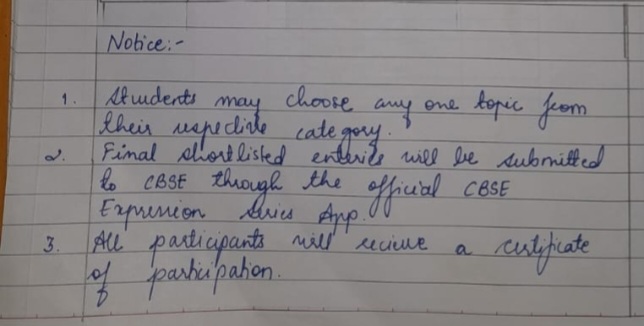 Notice:-
1. Students may choose any one topic from
their respective category.
2. Final shortlisted enteries will be submitted
to CBSE through the official CBSE
Expression Series App.
3. All participants will recieve a certificate
of participation.